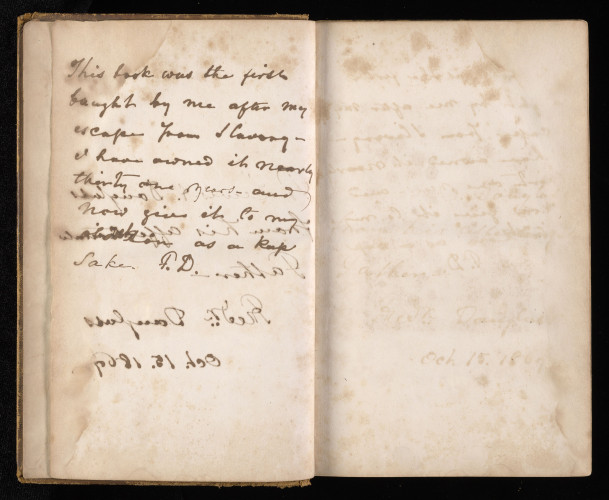 This book was the first
bought by me after my
escape from Slavery—
I have owned it nearly
thirty one years and
now give it to my
as a Keep
Sake. F.D.
Father
Fredk. Douglass
Oct. 15. 1869
Oct. 15. 1869